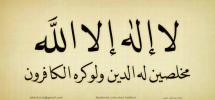 لا إله إلا الله
مخلصين له الدين ولو كره الكافرون